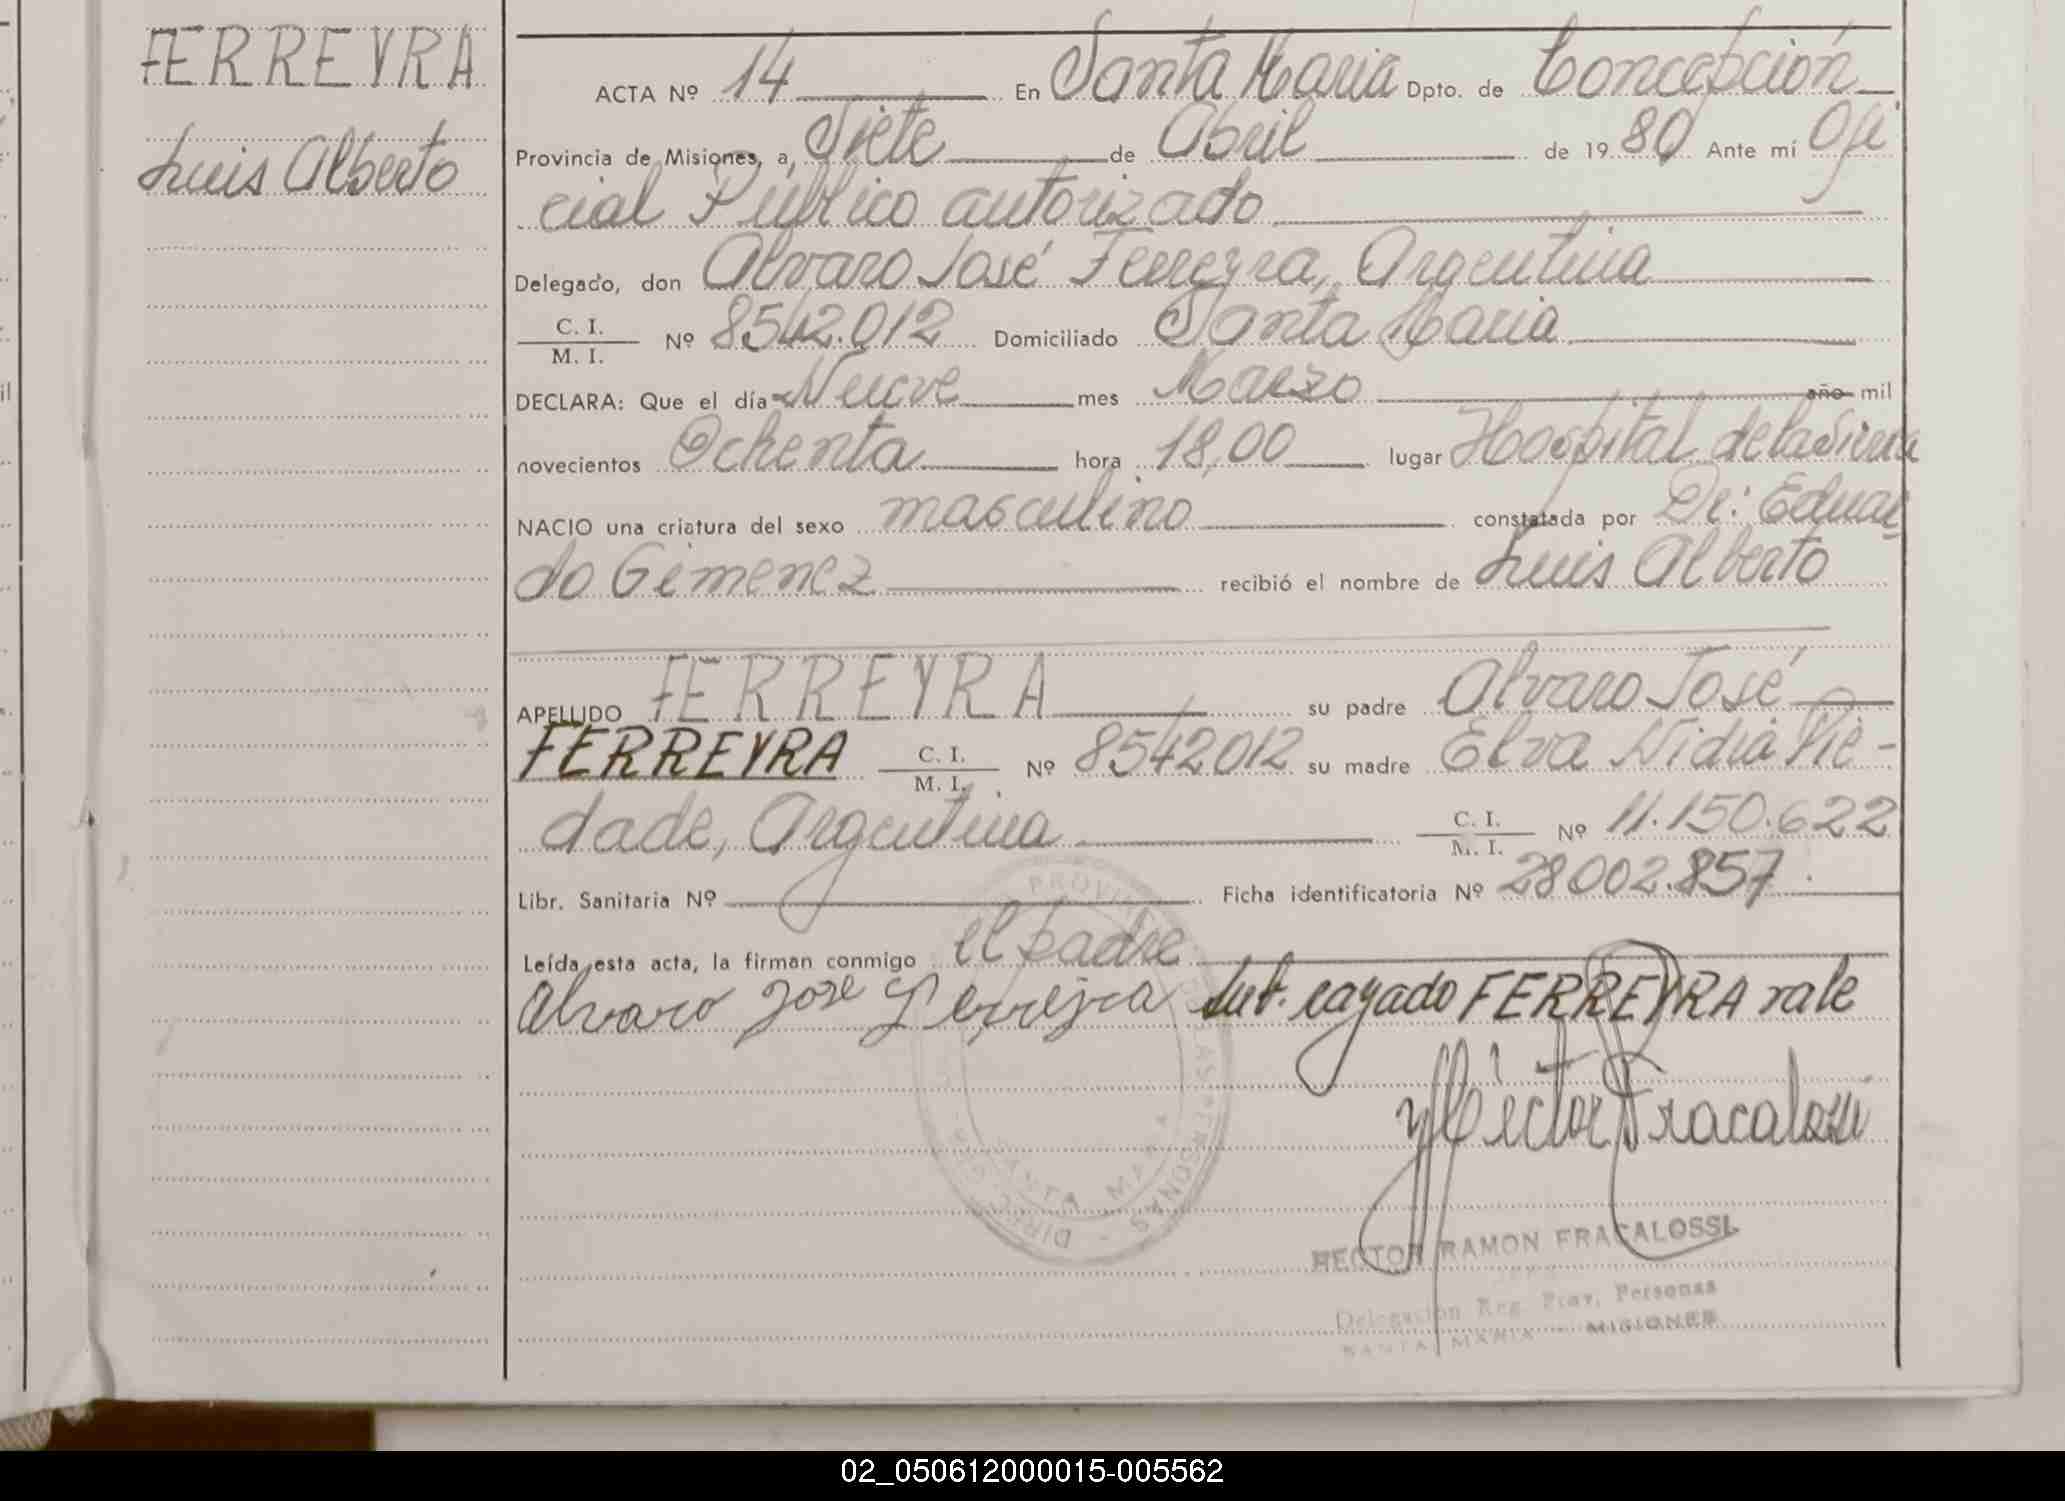 FERREYRA
Luis Alberto
ACTA Nº 14 En Santa Maria Dpto. de Concepción
Provincia de Misiones, a, Siete de Abril de 1980 Ante mí Ofi
cial Público autorizado
Delegado, don Alvaro José Ferreyra, Argentina
C. I.
M. I. Nº 8542.012 Domiciliado Santa Maria
DECLARA: Que el día Nueve mes Marzo año mil
novecientos Ochenta hora 18,00 lugar Hospital de la Sierra
NACIO una criatura del sexo masculino constatada por Dr: Eduar
do Gimenez recibió el nombre de Luis Alberto
APELLIDO FERREYRA su padre Alvaro José
FERREYRA C. I.
M. I. Nº 8542012 su madre Elva Nidia Pie-
dade, Argentina C. I.
M. I. Nº 11.150.622
Libr. Sanitaria Nº Ficha identificatoria Nº 28002.857
Leída esta acta, la firman conmigo el padre
Alvaro Jose Ferreyra sub. rayado FERREYRA vale
Hector R Fracalossi
DIREC. GRAL. PROVINCIAL DE LAS PERSONAS
SANTA MARIA
HECTOR RAMON FRACALOSSI
JEFE
Delegación Reg. Prov. Personas
SANTA MARIA - MISIONES
il
02_050612000015-005562